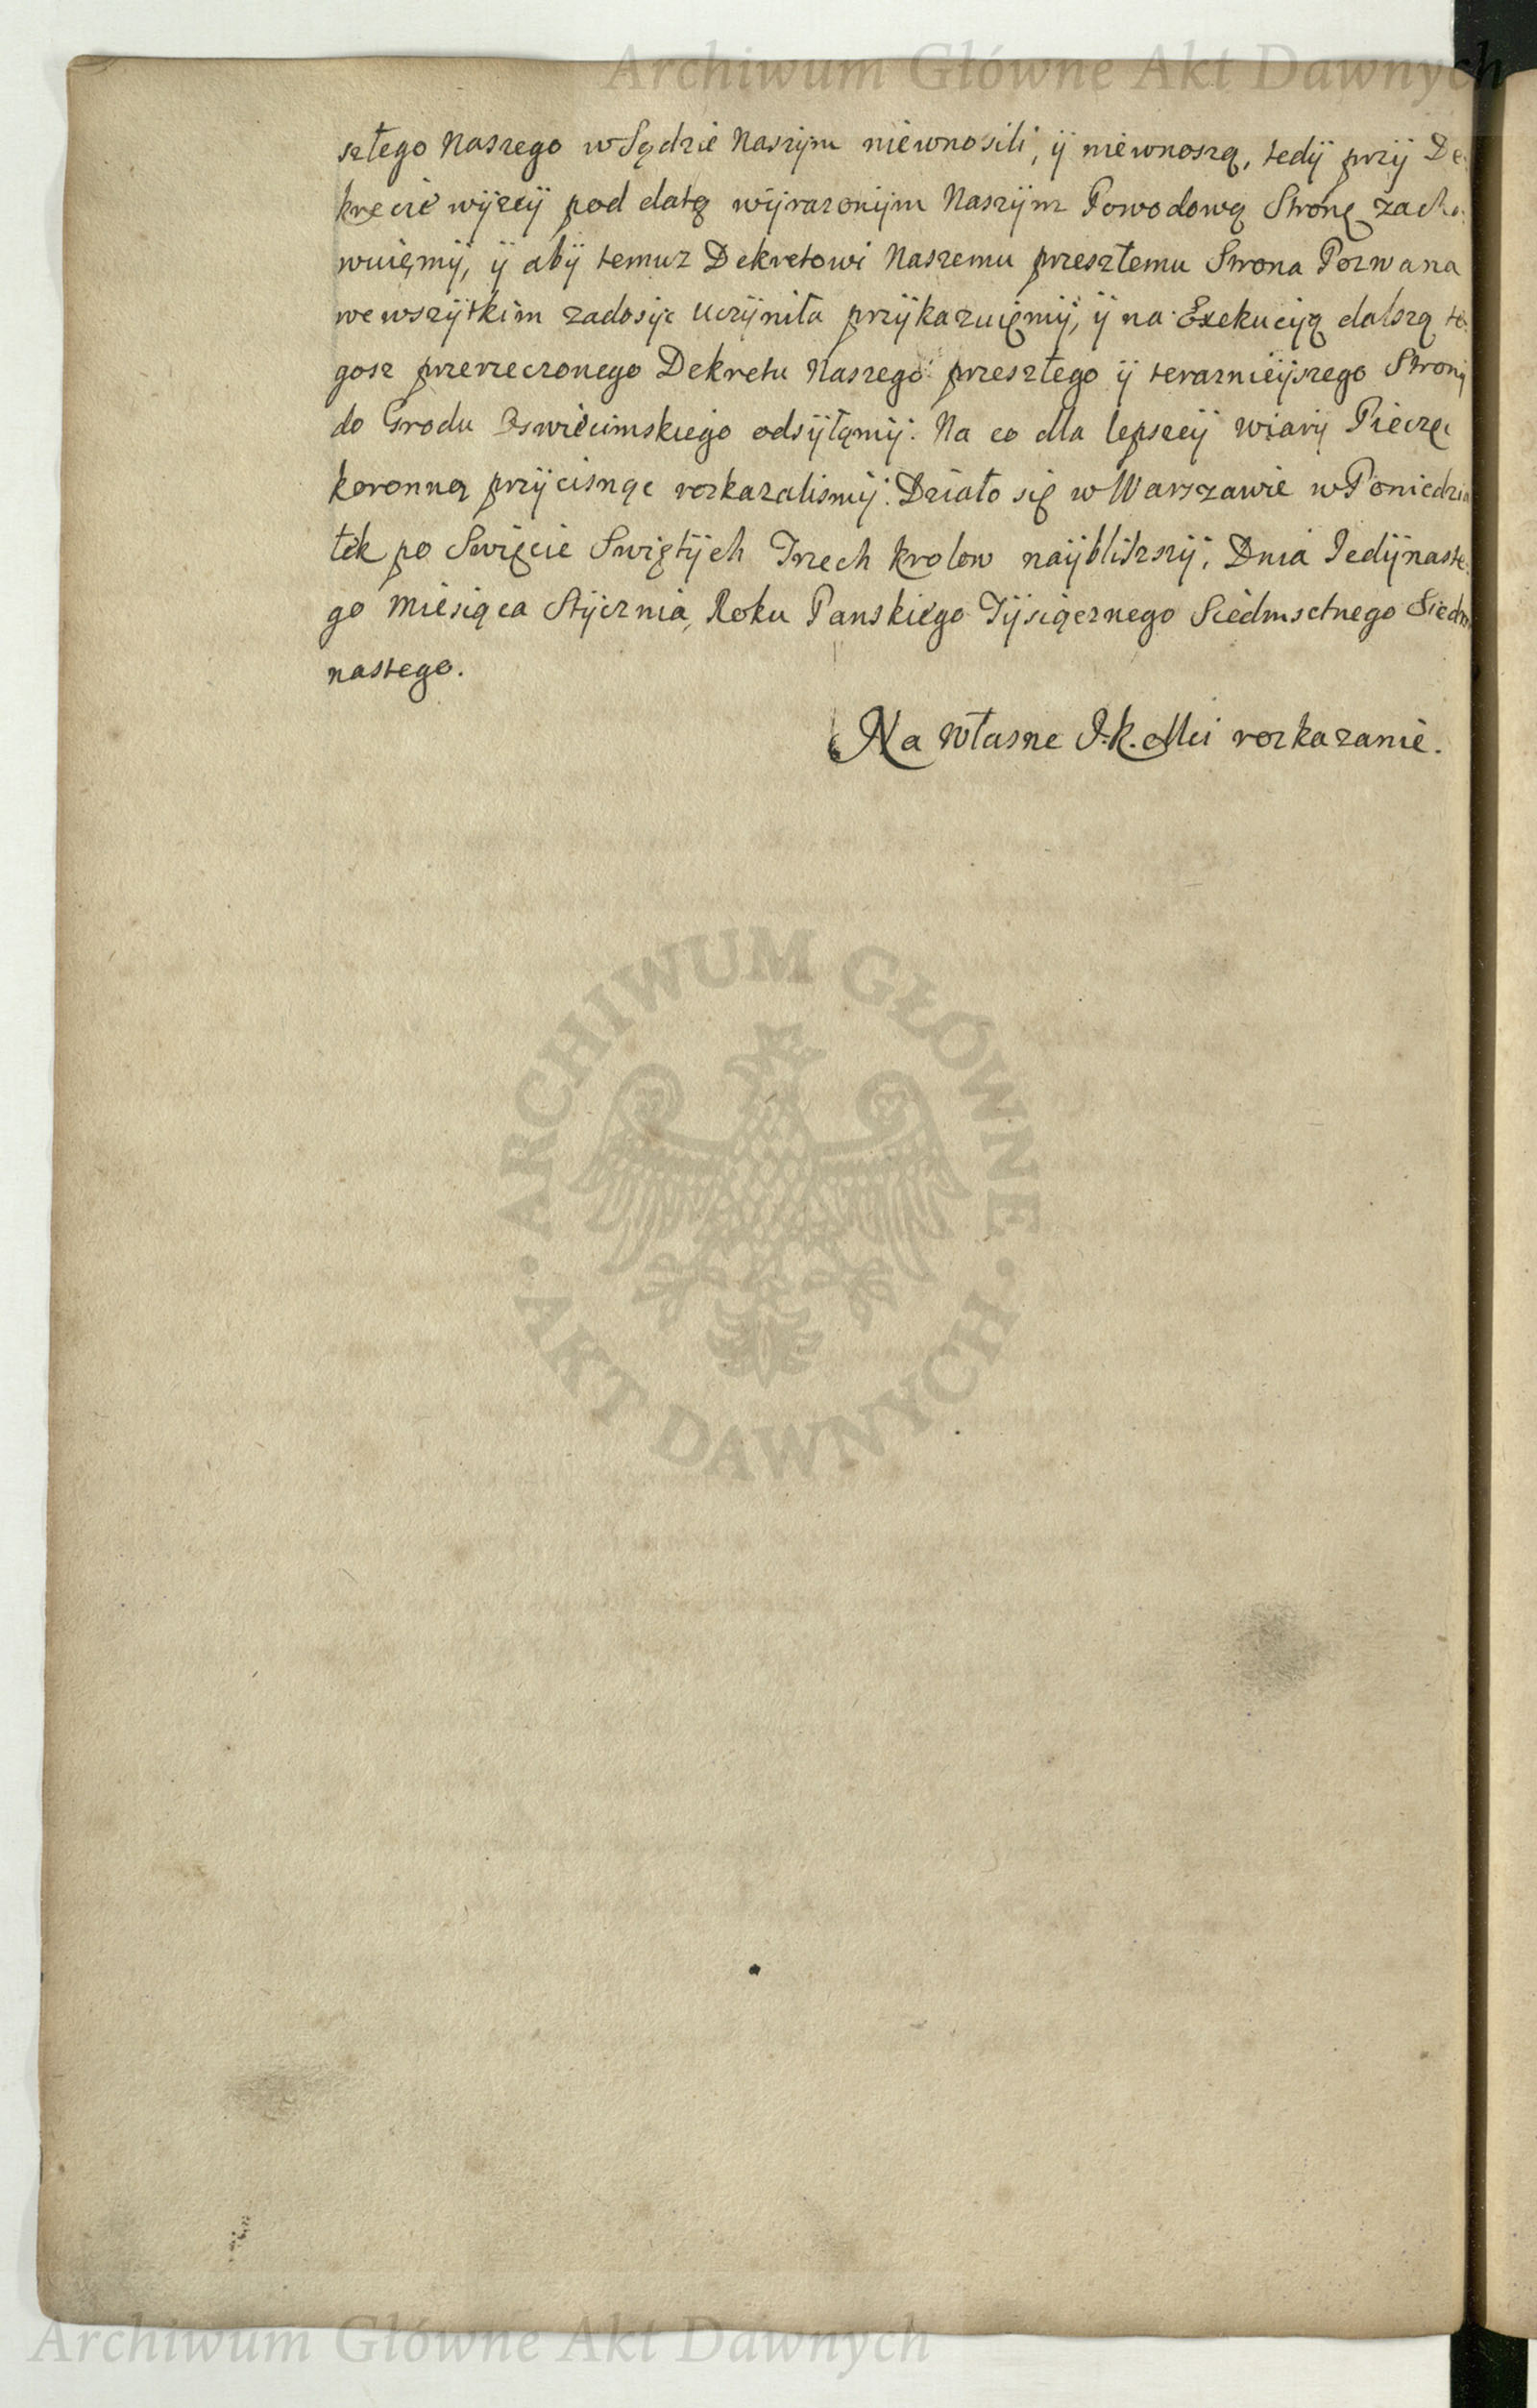 Archiwum Główne Akt Dawnych
szłego Naszego w Sądzie Naszÿm niewnosili, ÿ niewnoszą, tedÿ przÿ De-
krecie wÿzeÿ pod datą wÿrazonÿm Naszÿm Powodową Stronę zacho-
wuięmÿ, ÿ abÿ temuz Dekretowi Naszemu przeszłemu Strona Pozwana
we wszÿtkim zadosÿc uczÿniła przÿkazuięmÿ, ÿ na Exekucÿą dalszą te-
gosz przerzeczonego Dekretu Naszego przeszłego ÿ teraznieÿszego Stronÿ
do Grodu Oswiecimskiego odsÿłamÿ. Na co dla lepszeÿ wiarÿ Pieczęc
koronną przÿcisnąc rozkazalismÿ. Działo się w Warszawie w Poniedzia
łek po Swięcie Swiętÿch Trzech Krolow naÿblizszÿ, Dnia Jedÿnaste-
go Miesiąca Stÿcznia, Roku Panskiego Tÿsiącznego Siedmsetnego Siedm
nastego.
Na własne J. K. Mci rozkazanie.
ARCHIWUM GŁÓWNE
AKT DAWNYCH
Archiwum Główne Akt Dawnych